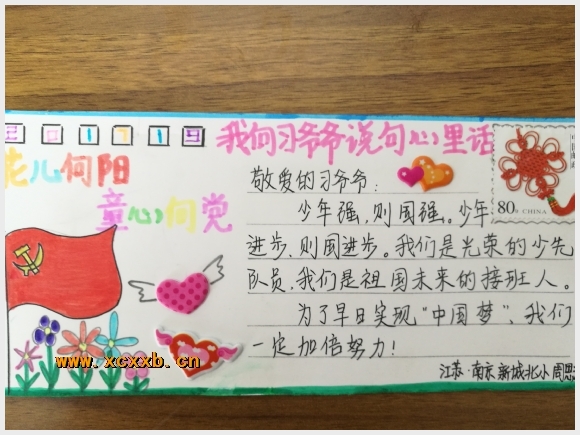 201719
我向习爷爷说句心里话
花儿向阳
童心向党
敬爱的习爷爷:
少年强,则国强。少年
进步,则国进步。我们是光荣的少先
队员,我们是祖国未来的接班人。
为了早日实现“中国梦”、我们
一定加倍努力!
江苏·南京新城北小周思
80分 CHINA
www.xcxxb.cn